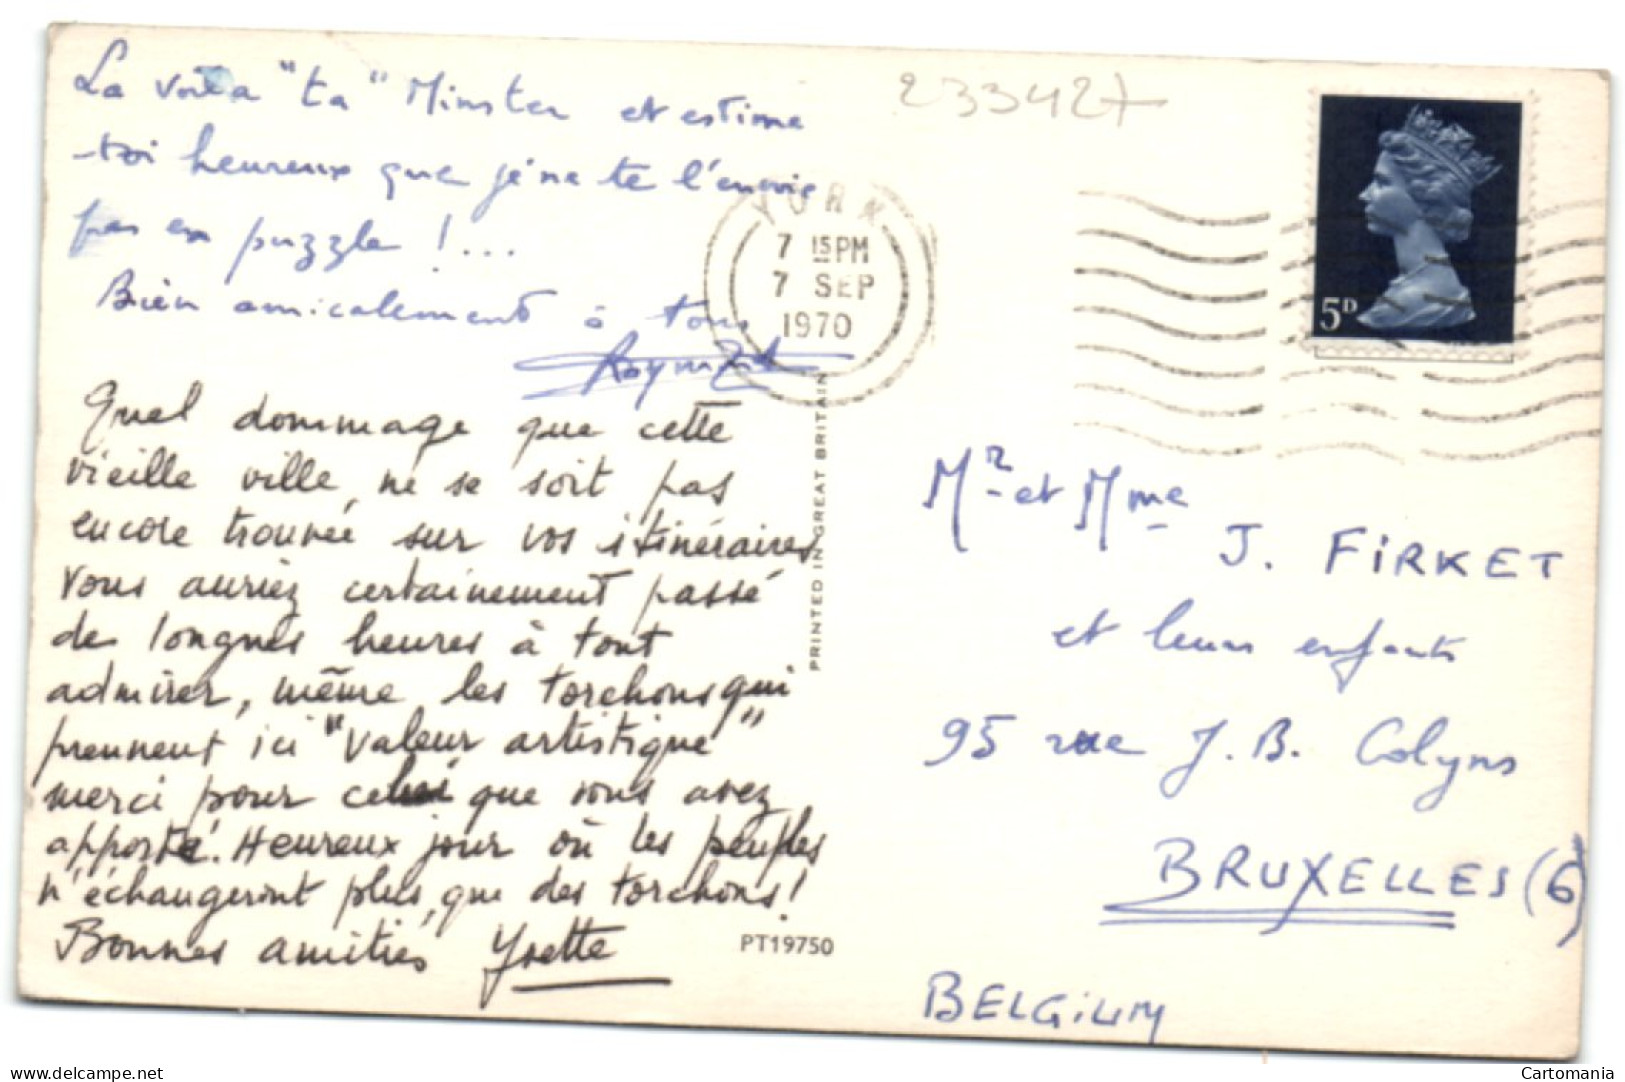 La voilà "ta" Minster et estime
-toi heureux que je ne te l'envoie
pas en puzzle !...
Bien amicalement à tous
Quel dommage que cette
vieille ville, ne se soit pas
encore trouvée sur vos itinéraires
Vous auriez certainement passé
de longues heures à tout
admirer, même les torchons qui
prennent ici "valeur artistique"
merci pour celui que vous avez
apporté. Heureux jour où les peuples
n'échangeront plus, que des torchons!
Bonnes amitiés Yvette
233427
YORK
7 15 PM
7 SEP
1970
5D
PRINTED IN GREAT BRITAIN
PT19750
Mr et Mme
J. FiRKET
et leurs enfants
95 rue J. B. Colyns
BRUXELLES (6)
BELGiUM
www.delcampe.net
Cartomania